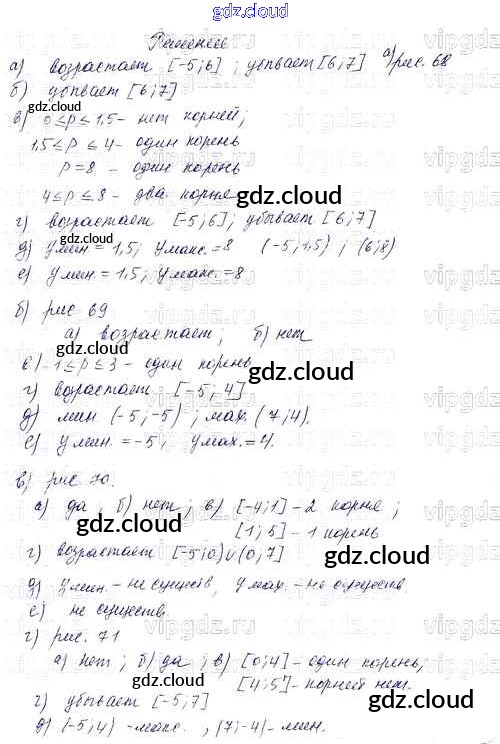 gdz.cloud
Решение
а) возрастает [-5;6]; убывает [6;7] а) рис. 68
б) убывает [6;7]
gdz.cloud
в) 0≤p≤1,5 - нет корней;
1,5≤p≤4 - один корень
p=8 - один корень
4≤p≤8 - два корня
gdz.cloud
г) возрастает [-5;6]; убывает [6;7]
д) yмин = 1,5; yмакс. = 8 (-5;1,5); (6;8)
е) yмин. = 1,5, yмакс. = 8
gdz.cloud
б) рис 69
а) возрастает; б) нет
gdz.cloud
в) -1≤p≤3 - один корень
gdz.cloud
г) возрастает [-5;4]
д) мин (-5;-5); мах. (7;4).
е) yмин. = -5, yмах. = 4.
в) рис 70.
gdz.cloud
а) да, б) нет; в) [-4;1] - 2 корня;
[1;5] - 1 корень
gdz.cloud
г) возрастает [-5;0)∪(0;7]
gdz.cloud
д) yмин. - не существ, yмах. - не существ
е) не существ.
г) рис. 71
gdz.cloud
а) нет; б) да; в) [0;4] - один корень,
[4;5] - корней нет.
г) убывает [-5;7]
gdz.cloud
д) (-5;4) - макс., (7;-4) - мин.
vipgdz.ru